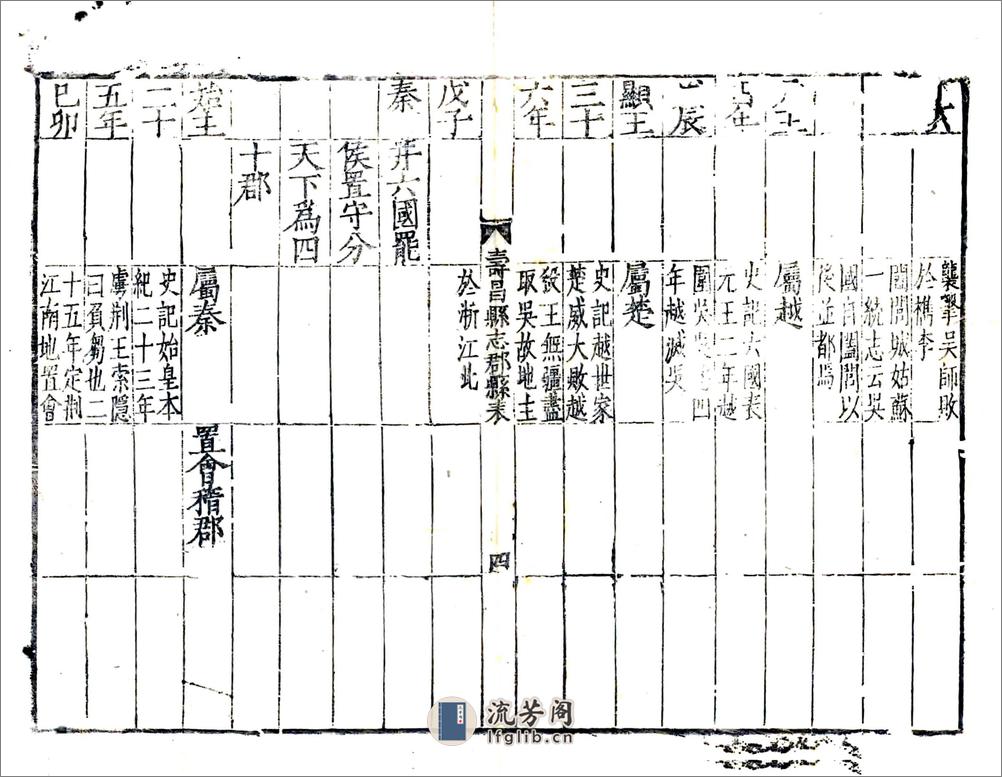 襲擊吳師敗
於檇李
闔閭城姑蘇
一統志云吳
國自闔閭以
後並都焉
元王
辰
屬越
史記六國表
元王二年越
圍吳
四
年越滅吳
顯王
三十
六年
戊子
屬楚
史記越世家
楚威大敗越
殺王無彊盡
取吳故地主
於淅江北
壽昌縣志郡縣表
四
秦
并六國罷
侯置守分
天下爲四
十郡
始王
二十
五年
己卯
屬秦
史記始皇本
紀二十三年
虜荆王索隱
曰負芻也二
十五年定荆
江南地置會
置會稽郡
流芳阁
lfglib.cn